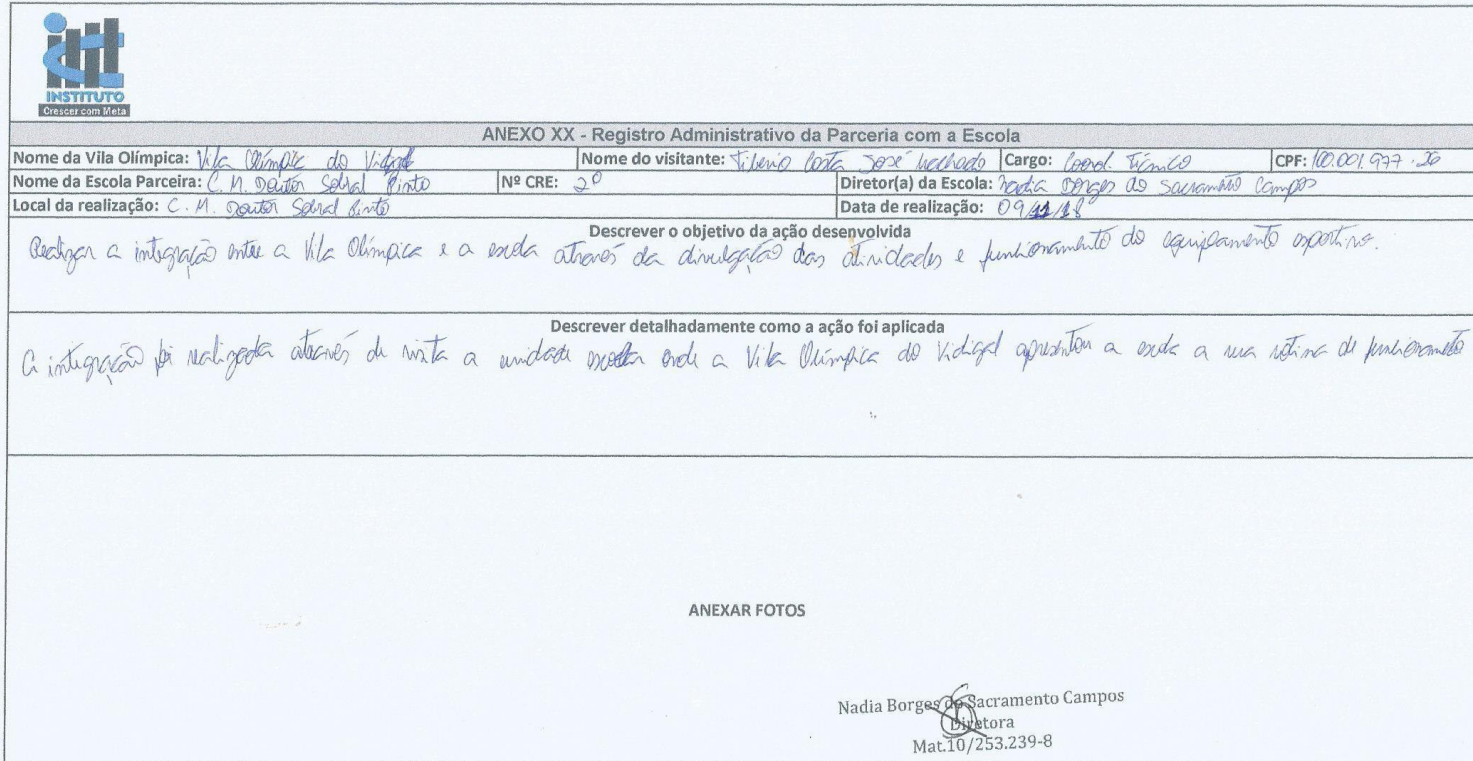 INSTITUTO
Crescer com Meta
ANEXO XX - Registro Administrativo da Parceria com a Escola
Nome da Vila Olímpica: Vila Olímpic do Vidigal Nome do visitante: Tiberio Costa José Machado Cargo: Coord. Técnico CPF: 100.001.977-26
Nome da Escola Parceira: C. M. Doutor Sobral Pinto Nº CRE: 2º Diretor(a) da Escola: Nadia Borges do Sacramento Campos
Local da realização: C. M. Doutor Sobral Pinto Data de realização: 09/11/18
Descrever o objetivo da ação desenvolvida
Realizar a integração entre a Vila Olímpica e a escola através da divulgação das atividades e funcionamento do equipamento esportivo.
Descrever detalhadamente como a ação foi aplicada
A integração foi realizada através de visita a unidade escolar onde a Vila Olímpica do Vidigal apresentou a escola a sua rotina de funcionamento
ANEXAR FOTOS
Nadia Borges do Sacramento Campos
Diretora
Mat.10/253.239-8